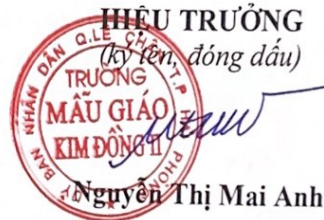 HIỆU TRƯỞNG
(ký tên, đóng dấu)
ỦY BAN NHÂN DÂN Q.LÊ CHÂN T.P HẢI PHÒNG
TRƯỜNG
MẪU GIÁO
KIM ĐỒNG II
Nguyễn Thị Mai Anh